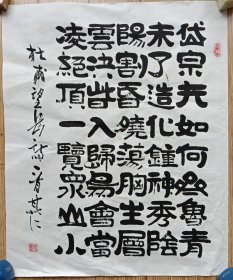 岱宗夫如何齊魯青
未了造化鍾神秀陰
陽割昏曉蕩胸生層
雲決眥入歸鳥會當
凌絕頂一覽眾山小
杜甫望岳詩 其仁